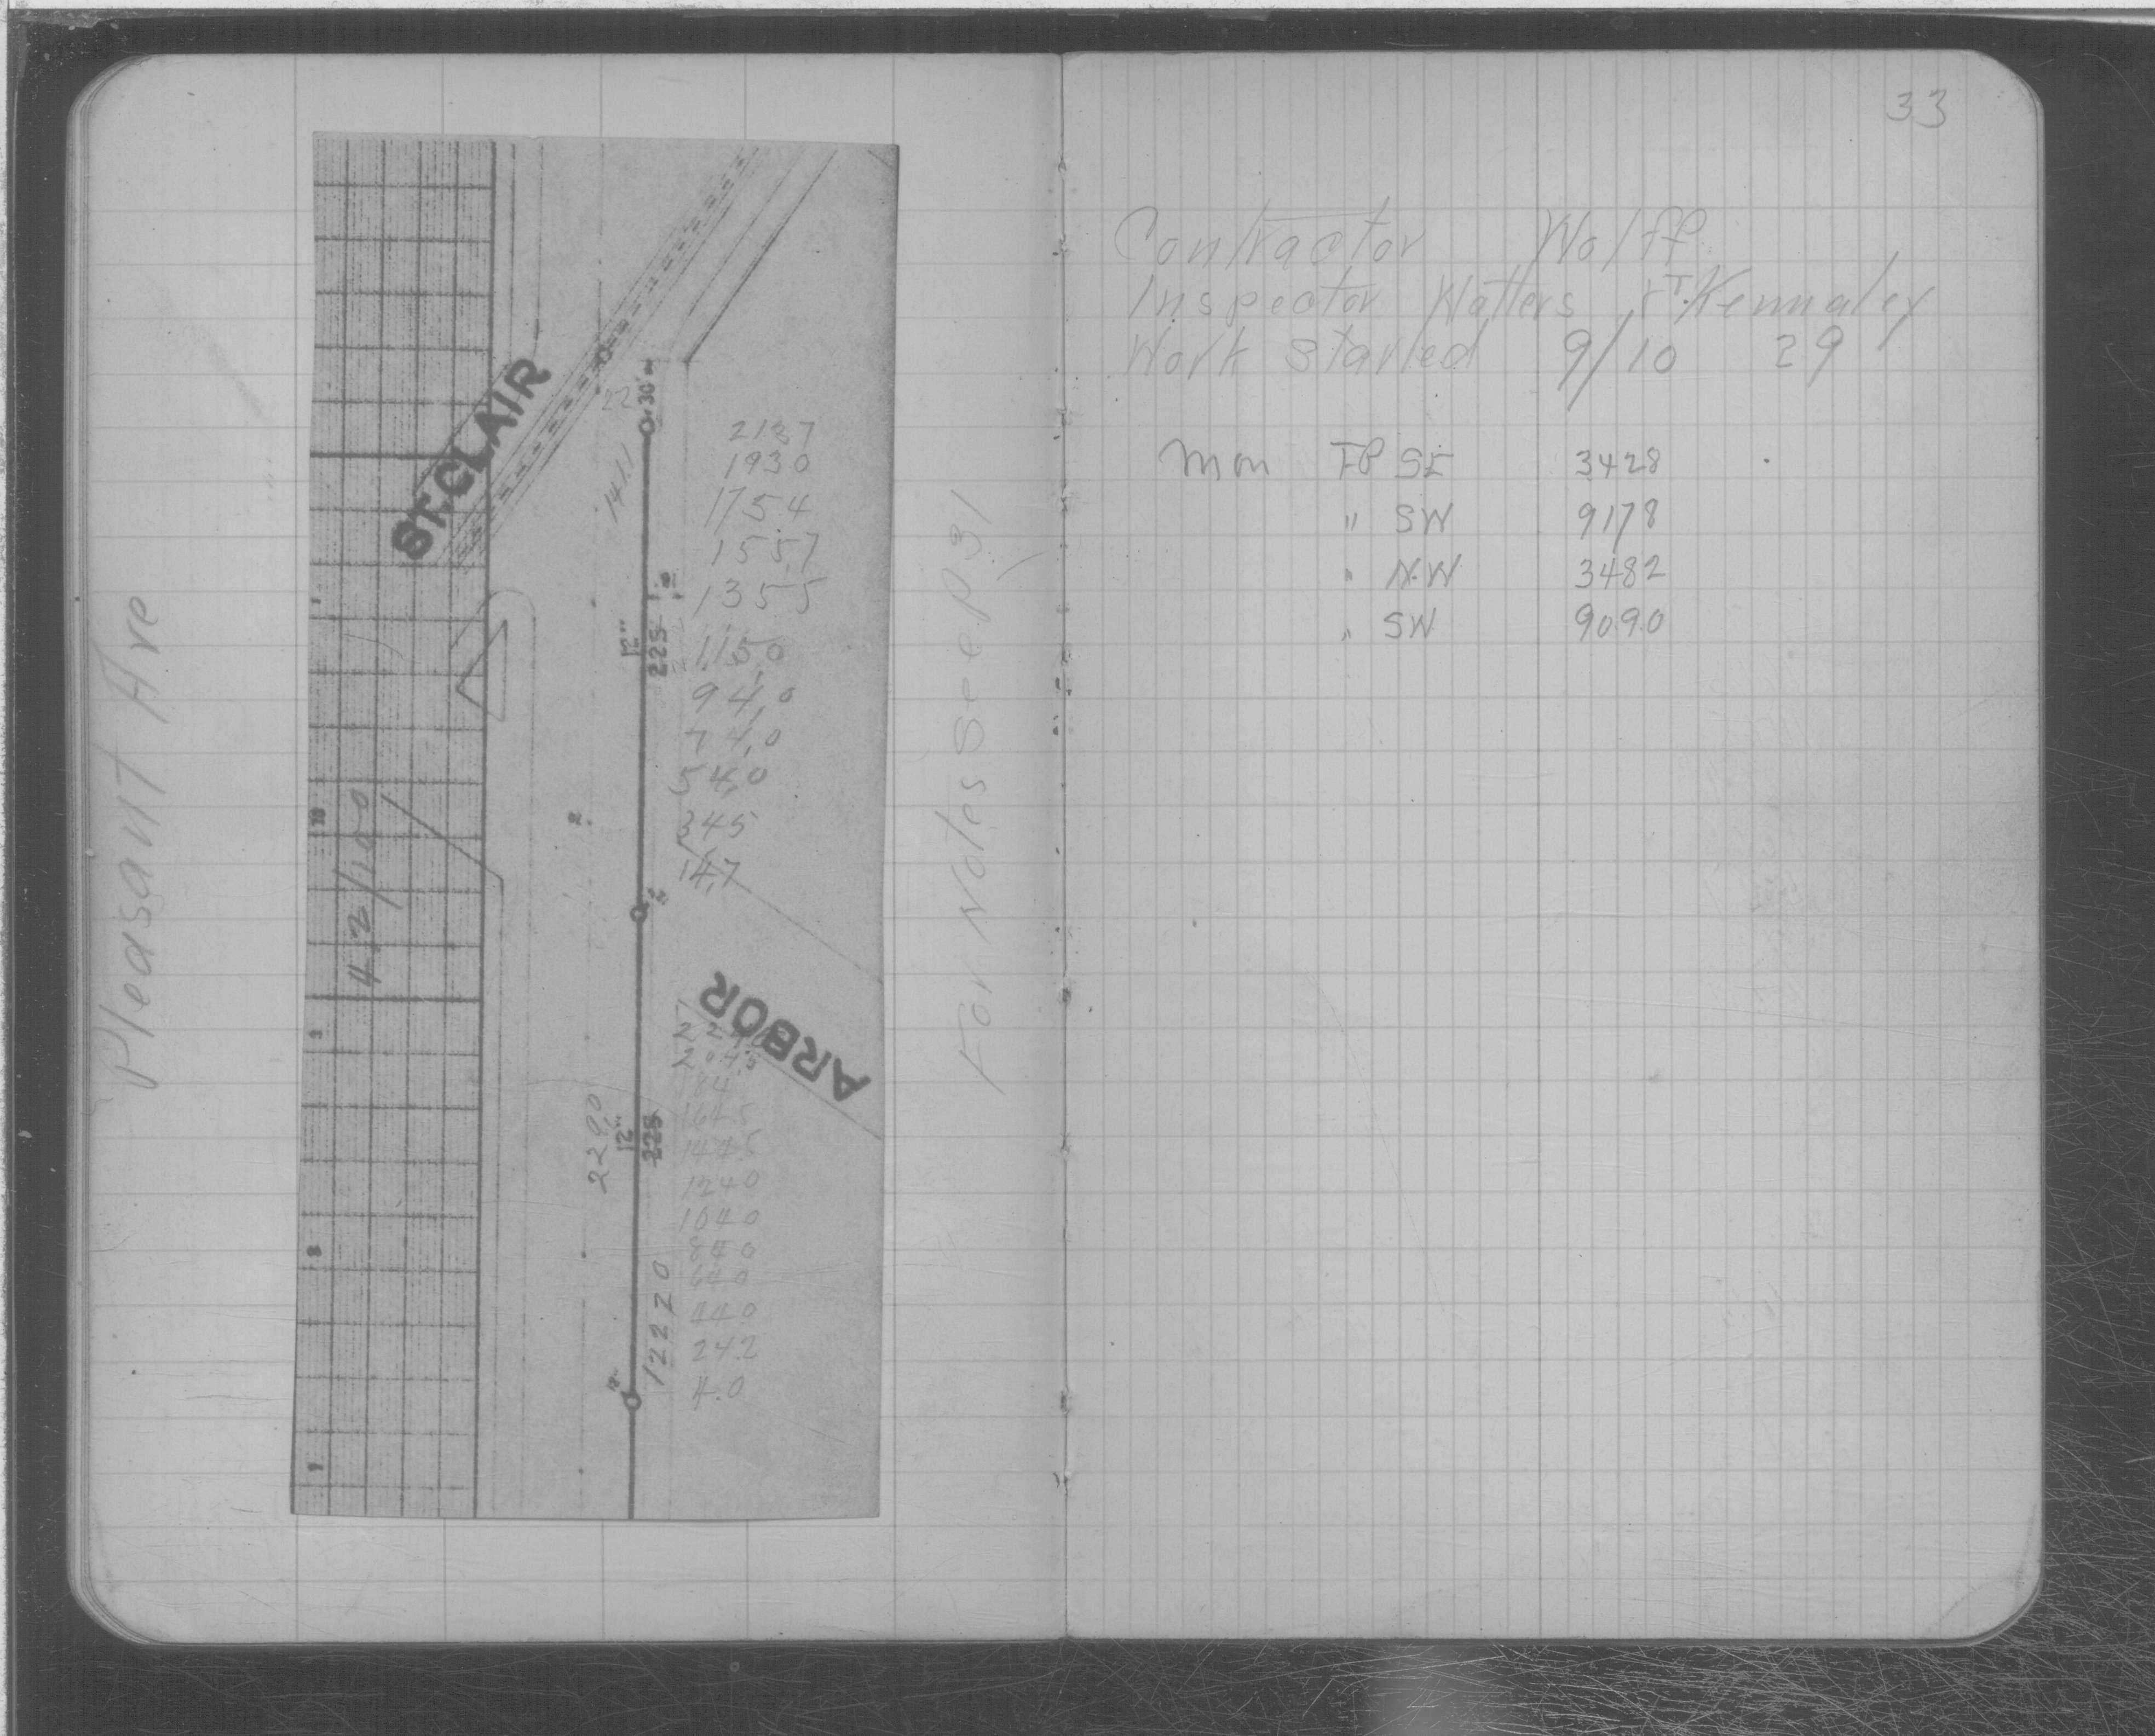 Pleasant Ave
422/1100
ST. CLAIR
22
30'
141.1
2127
1930
1754
155,7
1355
115,0
94,0
74,0
54,0
345
14,7
12"
225
ARBOR
204.5
184
164.5
144.5
1240
1040
840
640
440
242
4.0
229,0
12"
225
12220
For Notes See P31
33
Contractor Wolff
Inspector Watters + T. Kennaley
Work Started 9/10 29
Mon FP SE 3428
" SW 9178
" N.W 3482
" SW 9090